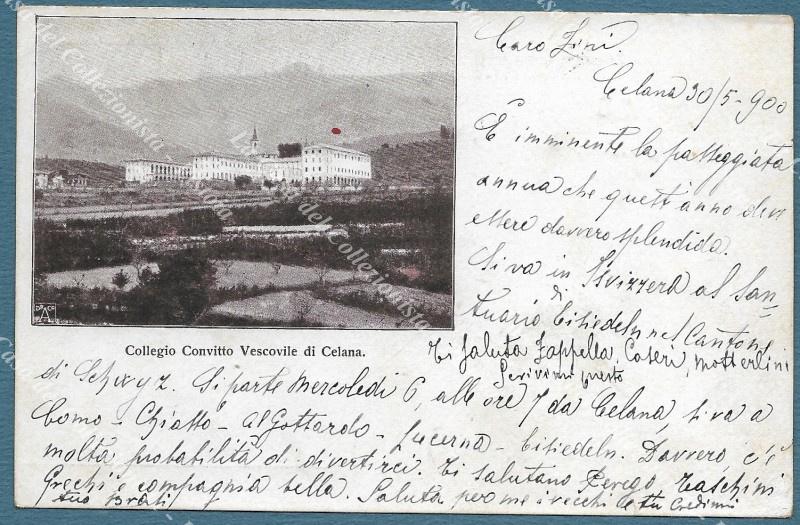 Caro Zinì.
Celana 30/5-900
È imminente la passeggiata
annua che quest'anno deve
essere davvero splendida.
Si va in Svizzera al San-
tuario di Eisiedeln nel Cantone
Ti saluta Zappella, Caseri, Motterlini
Scrivimi presto
Collegio Convitto Vescovile di Celana.
di Schwyz. Si parte Mercoledì 6, alle ore 7 da Celana, si va a
Como - Chiasso - al Gottardo - Lucerna - Eisiedeln. Davvero, c'è
molta probabilità di divertirci. Ti salutano Perego, Taschini
Grechi e compagnia bella. Saluta per me i vecchi e tu credimi
tuo